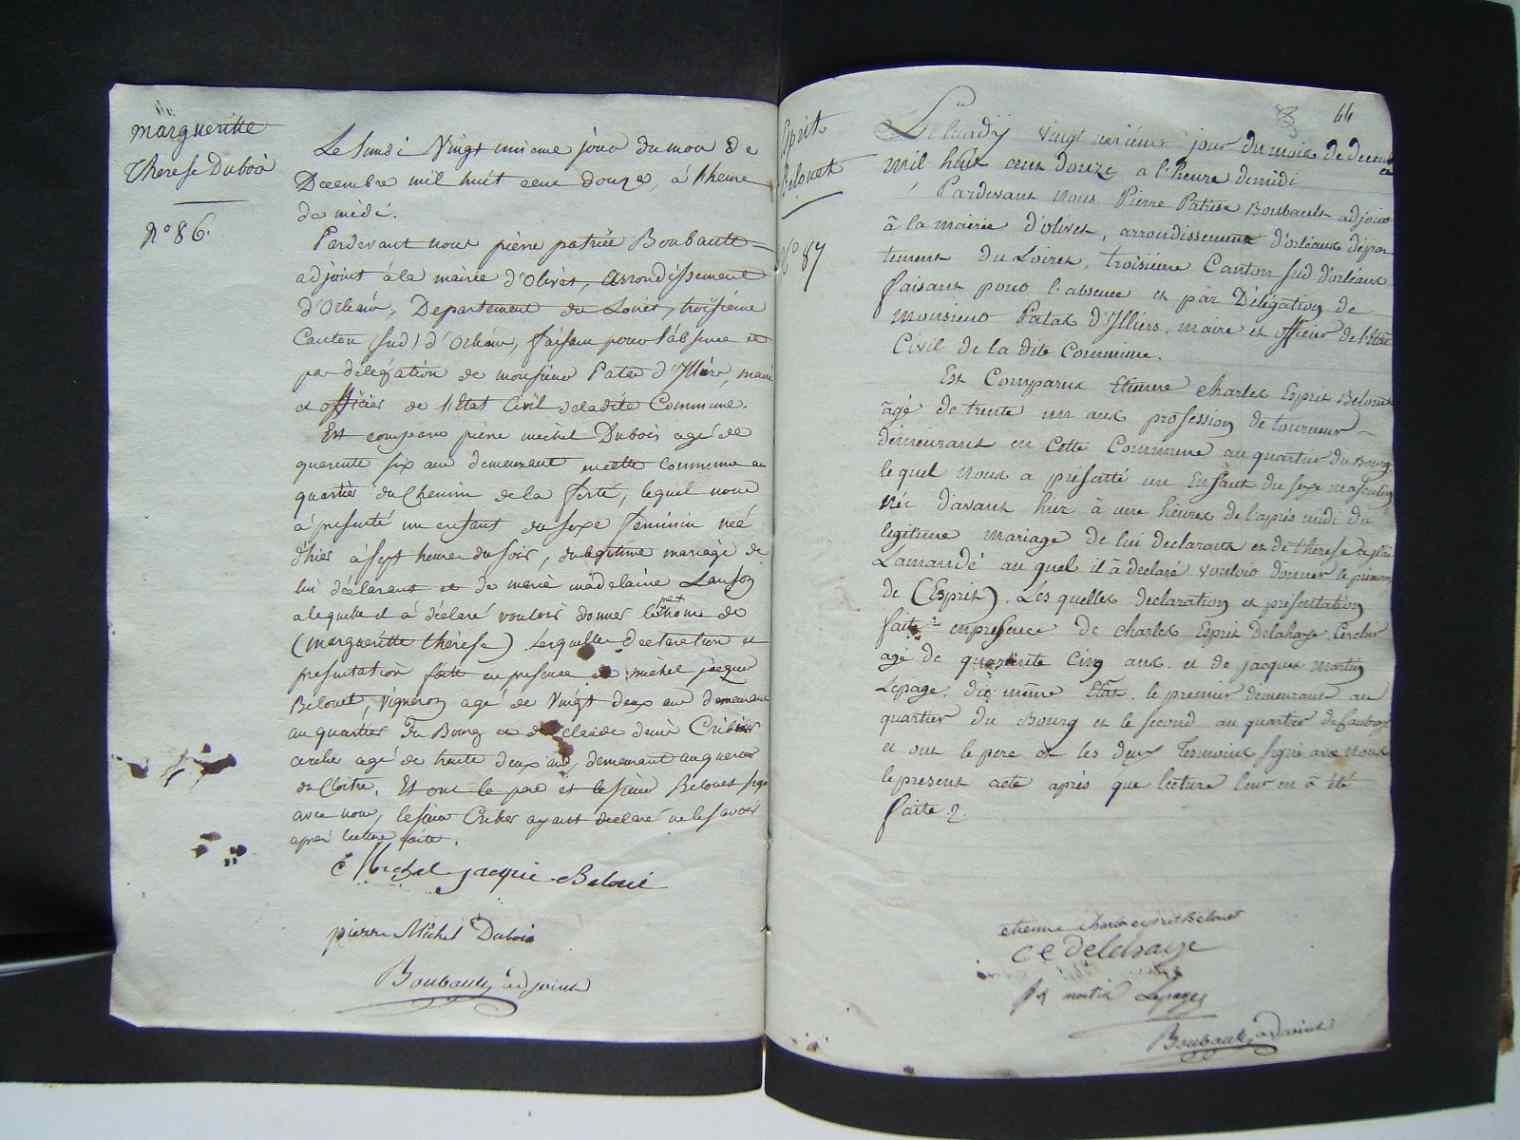 margueritte
Therese Dubois
N° 86.
Le lundi Vingt unieme jour du mois de
Decembre mil huit cent douze, à l'heure
de midi.
Pardevant nous pierre patrice Boubault
adjoint à la mairie d'Olivet, arrondissement
d'Orleans, Departement du Loiret, troisième
Canton (sud) d'Orleans, faisant pour l'absence et
par délégation de monsieur Patas d'Illiers, maire
et officier de l'Etat Civil de ladite Commune.
Est comparu pierre michel Dubois agé de
quarente six ans demeurant en cette Commune au
quartier du Chemin de la ferté, lequel nous
à presenté un enfant du sexe feminin né
d'hier à sept heures du soir, du legitime mariage de
lui déclarant et de marie madelaine
a laquelle il à déclaré vouloir donner le prénom de
(margueritte therese) lesquelles declaration et
presentation faite en presence de michel jacque
Belouet, vigneron agé de Vingt deux ans demeurant
au quartier du Bourg et de claude denis Cribier
agé de trente deux ans, demeurant au quartier
du Cloitre. Et ont le pere et le sieur Belouet signé
avec nous, le sieur Cribier ayant declaré ne le savoir
après lecture faite.
Michel jacque Beloué
pierre Michel Dubois
Boubault adjoint
66
Esprit
Belouet
N° 87
Le lundy vingt unieme jour du mois de decembre
mil huit cent douze a l'heure de midi
Pardevant nous Pierre Patrice Boubault adjoint
à la mairie d'olivet, arrondissement d'orléans dépar
tement du Loiret, troisieme Canton sud d'orléans
faisant pour l'absence et par Délégation de
monsieur Patas d'Illiers, maire et officier de l'état
Civil de la dite Commune.
Est Comparu Etienne Charles Esprit Belouet
âgé de trente un ans profession de tourneur
demeurant en Cette Commune au quartier du Bourg
lequel nous a présenté un Enfant du sexe masculin
née d'avant hier à une heure de l'après midi du
legitime mariage de lui declarant et de therese
Lamandé au quel il à declaré vouloir donner le prénom
de (Esprit). Les quelles declaration et présentation
faite en presence de Charles Esprit Delahaye
agé de quarante Cinq ans et de jacques martin
Lepage, du même Etat, le premier demeurant au
quartier du Bourg et le second au quartier du faubourg
et ont le pere et les deux Temoins signé avec nous
le present acte après que lecture leur en à été
faite.
etienne charle esprit Belouet
C E Delahaye
jq martin Lepages
Boubault adjoint